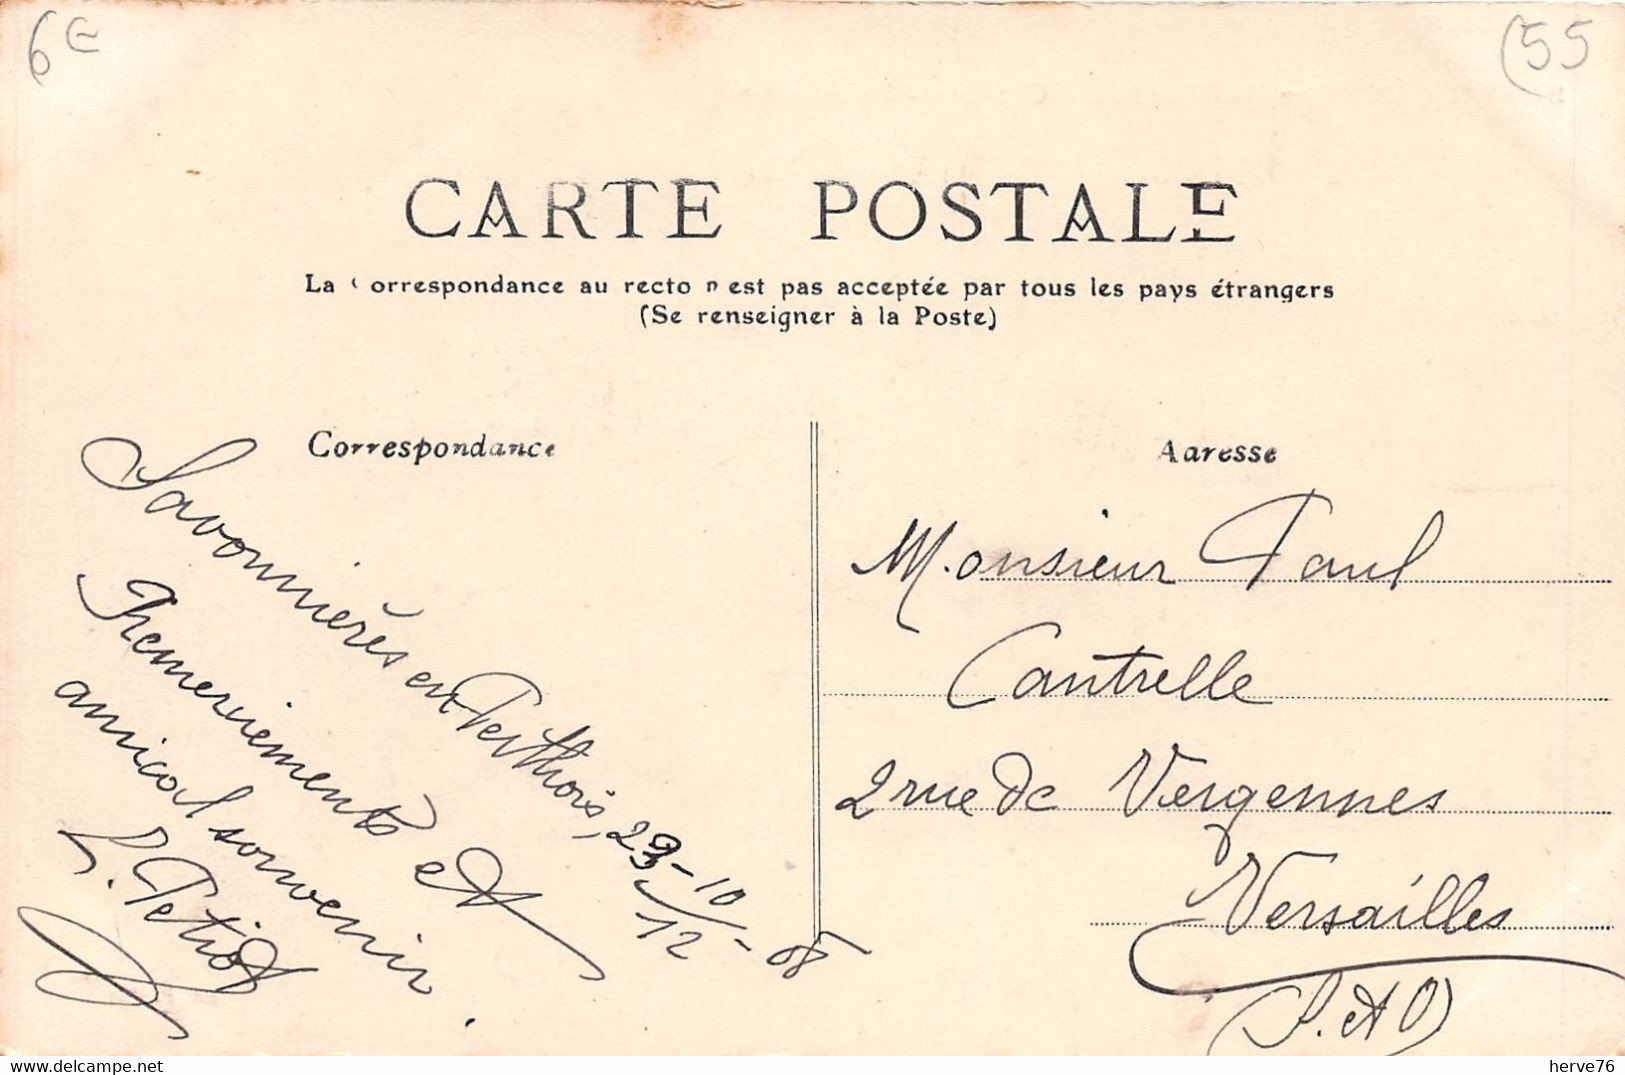 6€
(55
CARTE POSTALE
La Correspondance au recto n'est pas acceptée par tous les pays étrangers
(Se renseigner à la Poste)
Correspondance
Savonnières en Perthois, 29-10-08
12
Remerciements et
amical souvenir.
L. Petiot
Adresse
Monsieur Paul
Cantrelle
2 rue de Vergennes
Versailles
(S. et O)
herve76